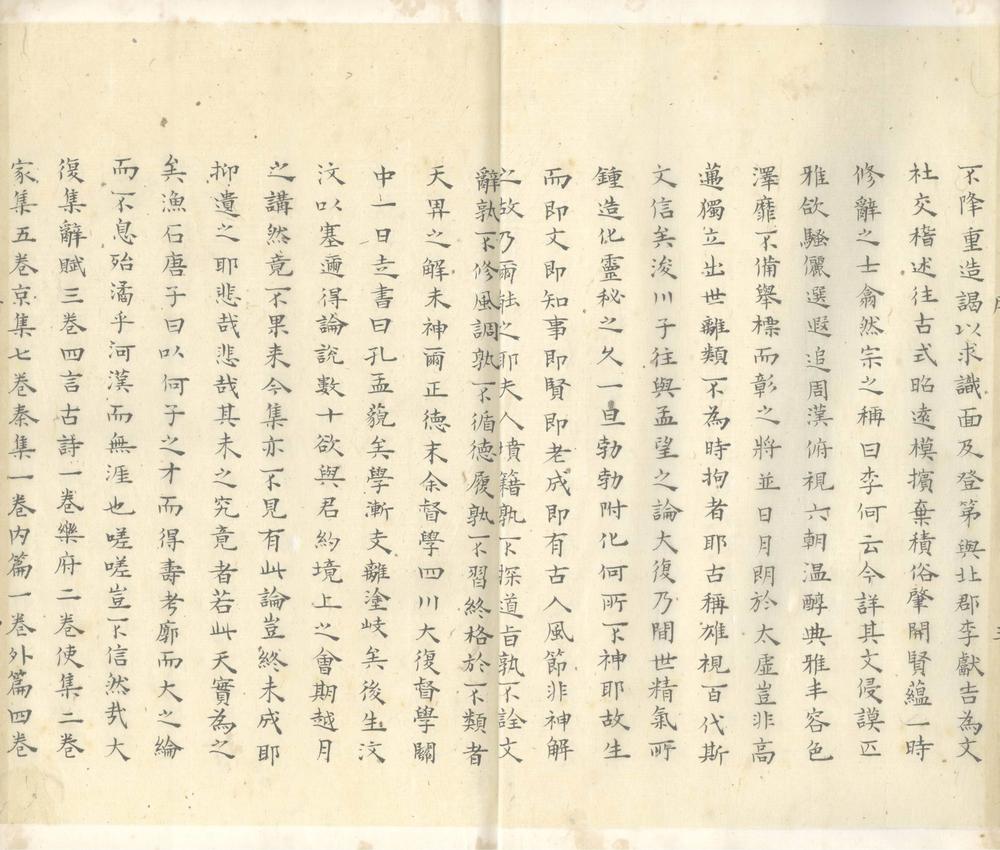 不降重造謁以求識面及登第與北郡李獻吉為文
社交楷述往古式昭遠模擯棄積俗肇開賢蘊一時
修辭之士翕然宗之稱曰李何云今詳其文侵謨匹
雅欱騷儷選遐追周漢俯視六朝溫醇典雅丰容色
澤靡不備舉標而彰之將並日月朗於太虛豈非高
邁獨立出世離類不為時拘者耶古稱雄視百代斯
文信矣浚川子往與孟望之論大復乃間世精氣所
鍾造化靈秘之久一旦勃勃附化何所不神耶故生
而即文即知事即賢即老成即有古人風節非神解
之故乃爾能之耶夫人墳籍孰不探道旨孰不詮文
辭孰不修風調孰不循德履孰不習終格於不類者
天畀之解未神爾正德末余督學四川大復督學關
中一日走書曰孔孟藐矣學漸支離塗岐矣後生汶
汶以塞邇得論說數十欲與君約境上之會期越月
之講然竟不果来今集亦不見有此論豈終未成耶
抑遺之耶悲哉悲哉其未之究竟者若此天實為之
矣漁石唐子曰以何子之才而得壽考廓而大之綸
而不息殆潏乎河漢而無涯也嗟嗟豈不信然哉大
復集辭賦三卷四言古詩一卷樂府二卷使集二卷
家集五卷京集七卷秦集一卷內篇一卷外篇四卷